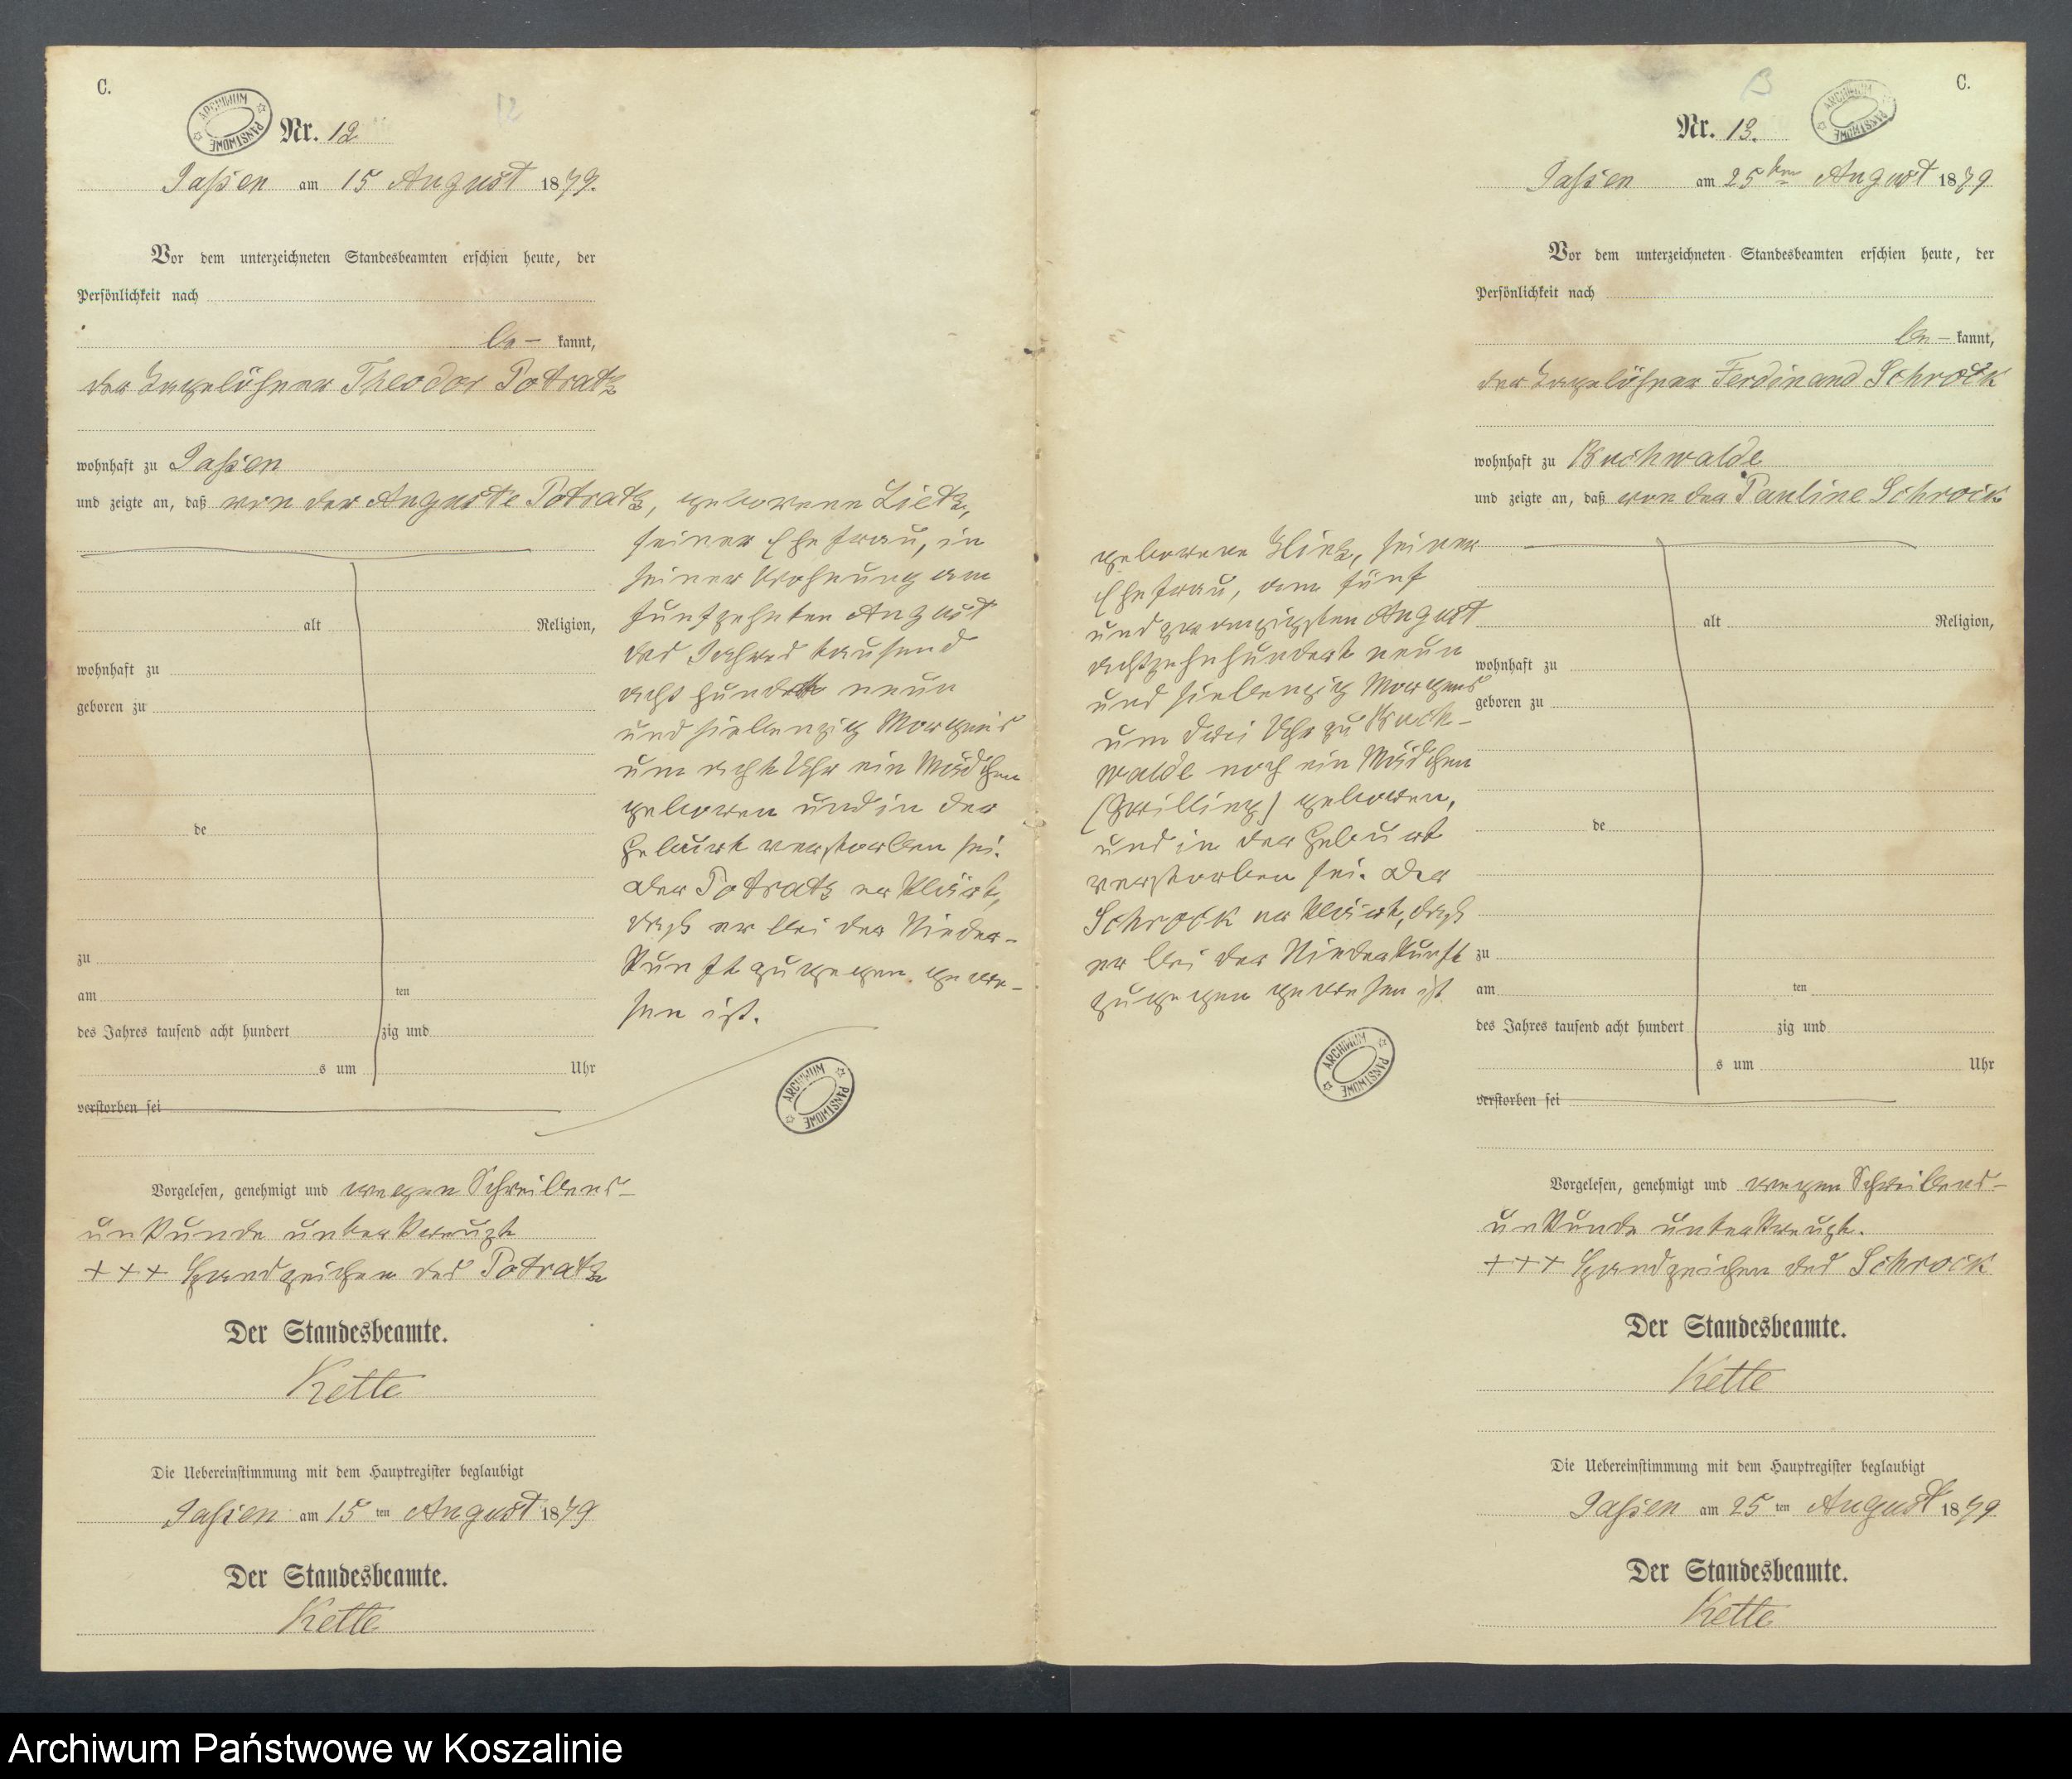 C.
ARCHIWUM PAŃSTWOWE
Nr. 12
12
Jassen am 15 August 1879.
Vor dem unterzeichneten Standesbeamten erschien heute, der
Persönlichkeit nach
be- kannt,
der Tagelöhner Theodor Potratz
wohnhaft zu Jassen
und zeigte an, daß von der Auguste Potratz, geborene Lietz,
seiner Ehefrau, in
seiner Wohnung am
funfzehnten August
des Jahres tausend
acht hundert neun
und siebenzig Morgens
um acht Uhr ein Mädchen
geboren und in der
Geburt verstorben sei.
Der Potratz erklärt,
daß er bei der Nieder-
kunft zugegen gewe-
sen ist.
ARCHIWUM PAŃSTWOWE
alt Religion,
wohnhaft zu
geboren zu
de
zu
am ten
des Jahres tausend acht hundert zig und
s um Uhr
verstorben sei
Vorgelesen, genehmigt und wegen Schreibens-
unkunde unterkreuzt
+++ Handzeichen des Potratz
Der Standesbeamte.
Kette
Die Uebereinstimmung mit dem Hauptregister beglaubigt
Jassen am 15 ten August 1879
Der Standesbeamte.
Kette
C.
ARCHIWUM PAŃSTWOWE
13
Nr. 13.
Jassen am 25ten August 1879
Vor dem unterzeichneten Standesbeamten erschien heute, der
Persönlichkeit nach
be- kannt,
der Tagelöhner Ferdinand Schrock
wohnhaft zu Buchwalde
und zeigte an, daß von der Pauline Schrock
geborene seiner
Ehefrau, am fünf
und zwanzigsten August
achtzehnhundert neun
und siebenzig Morgens
um drei Uhr zu Buch-
walde noch ein Mädchen
(Zwilling) geboren,
und in der Geburt
verstorben sei. Der
Schrock erklärt, daß
er bei der Niederkunft
zugegen gewesen ist
ARCHIWUM PAŃSTWOWE
alt Religion,
wohnhaft zu
geboren zu
de
zu
am ten
des Jahres tausend acht hundert zig und
s um Uhr
verstorben sei
Vorgelesen, genehmigt und wegen Schreibens-
unkunde unterkreuzt.
+++ Handzeichen des Schrock
Der Standesbeamte.
Kette
Die Uebereinstimmung mit dem Hauptregister beglaubigt
Jassen am 25 ten August 1879
Der Standesbeamte.
Kette
Archiwum Państwowe w Koszalinie